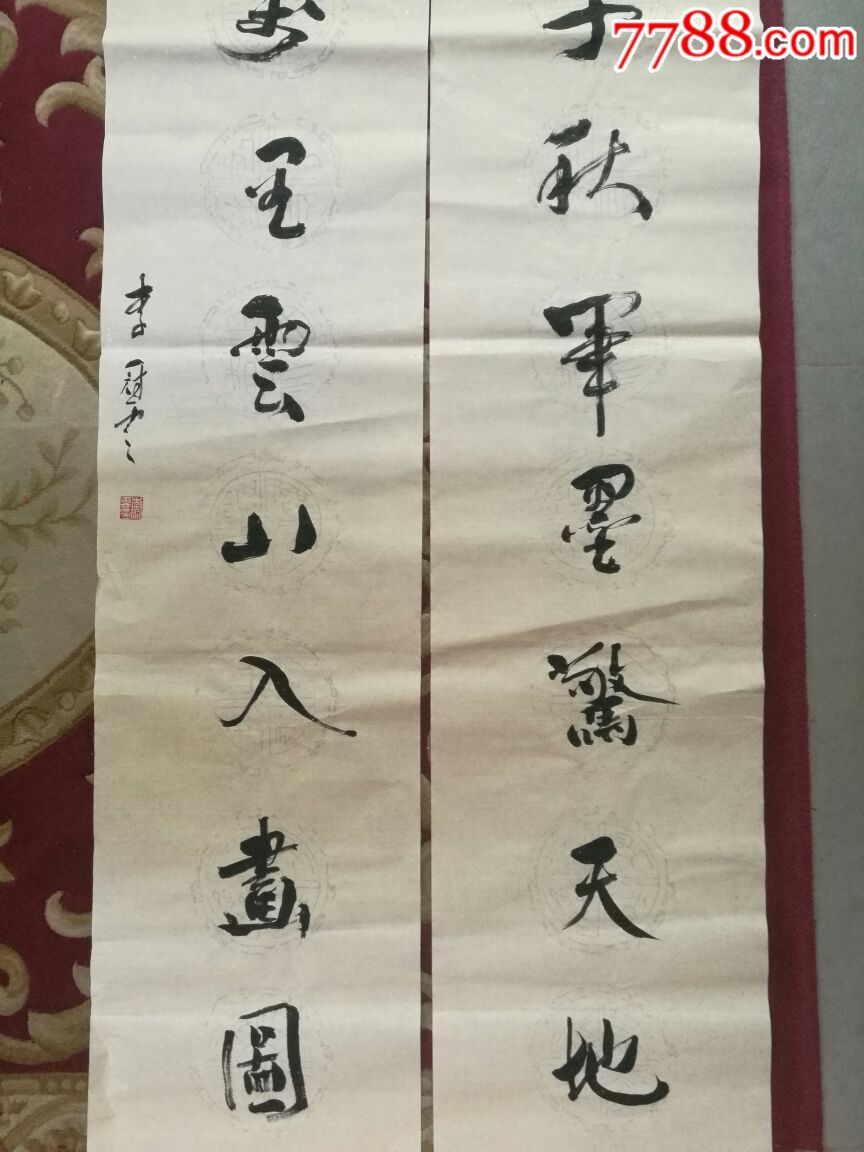 7788.com
千秋筆墨驚天地
萬里雲山入畫圖
李